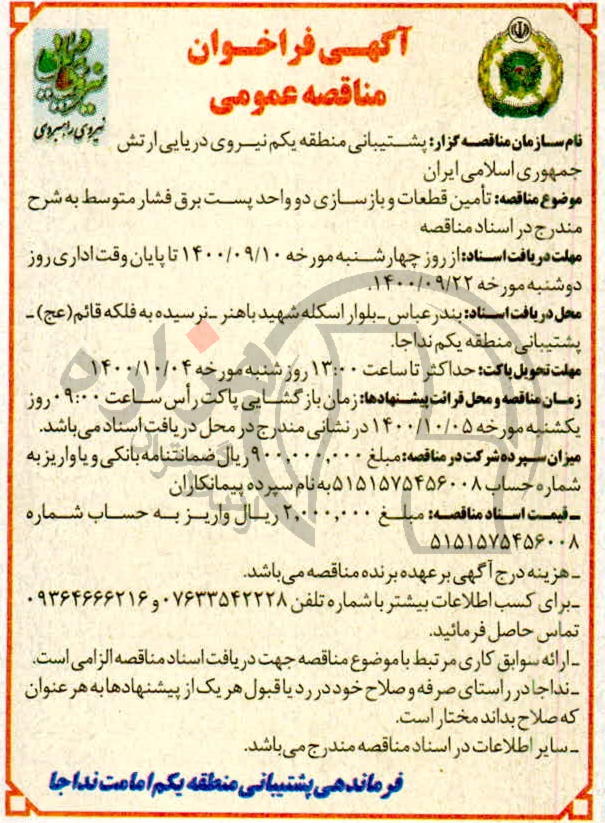 آگهی فراخوان
مناقصه عمومی
نیروی راهبردی
نام سازمان مناقصه گزار: پشتیبانی منطقه یکم نیروی دریایی ارتش
جمهوری اسلامی ایران
موضوع مناقصه: تأمین قطعات و بازسازی دو واحد پست برق فشار متوسط به شرح
مندرج در اسناد مناقصه
مهلت دریافت اسناد: از روز چهارشنبه مورخه ۱۴۰۰/۰۹/۱۰ تا پایان وقت اداری روز
دوشنبه مورخه ۱۴۰۰/۰۹/۲۲.
محل دریافت اسناد: بندرعباس ـ بلوار اسکله شهید باهنر ـ نرسیده به فلکه قائم (عج) ـ
پشتیبانی منطقه یکم نداجا.
مهلت تحویل پاکت: حداکثر تا ساعت ۱۳:۰۰ روز شنبه مورخه ۱۴۰۰/۱۰/۰۴
زمان مناقصه و محل قرائت پیشنهادها: زمان بازگشایی پاکت رأس ساعت ۰۹:۰۰ روز
یکشنبه مورخه ۱۴۰۰/۱۰/۰۵ در نشانی مندرج در محل دریافت اسناد می‌باشد.
میزان سپرده شرکت در مناقصه: مبلغ ۹۰۰,۰۰۰,۰۰۰ ریال ضمانتنامه بانکی و یا واریز به
شماره حساب ۵۱۵۱۵۷۵۴۵۶۰۰۸ به نام سپرده پیمانکاران
ـ قیمت اسناد مناقصه: مبلغ ۲,۰۰۰,۰۰۰ ریال واریز به حساب شماره
۵۱۵۱۵۷۵۴۵۶۰۰۸
ـ هزینه درج آگهی بر عهده برنده مناقصه می‌باشد.
ـ برای کسب اطلاعات بیشتر با شماره تلفن ۰۷۶۳۳۵۴۲۲۲۸ و ۰۹۳۶۴۶۶۶۲۱۶
تماس حاصل فرمائید.
ـ ارائه سوابق کاری مرتبط با موضوع مناقصه جهت دریافت اسناد مناقصه الزامی است.
ـ نداجا در راستای صرفه و صلاح خود در رد یا قبول هر یک از پیشنهادها به هر عنوان
که صلاح بداند مختار است.
ـ سایر اطلاعات در اسناد مناقصه مندرج می‌باشد.
فرماندهی پشتیبانی منطقه یکم امامت نداجا
هزاره